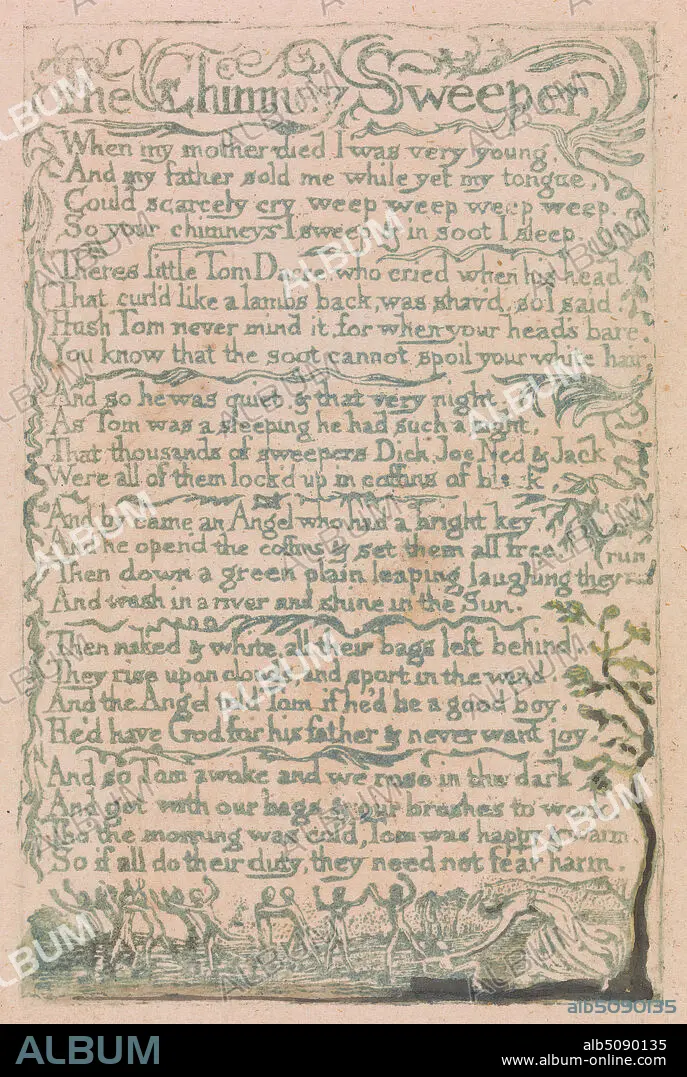 The Chimney Sweeper
When my mother died I was very young,
And my father sold me while yet my tongue,
Could scarcely cry weep weep weep weep.
So your chimneys I sweep & in soot I sleep.
Theres little Tom Dacre, who cried when his head
That curl'd like a lambs back, was shav'd, so I said.
Hush Tom never mind it, for when your head's bare,
You know that the soot cannot spoil your white hair
And so he was quiet, & that very night.
As Tom was a sleeping he had such a sight,
That thousands of sweepers Dick, Joe, Ned & Jack
Were all of them lock'd up in coffins of black,
And by came an Angel who had a bright key
And he open'd the coffins & set them all free.
Then down a green plain leaping laughing they run
And wash in a river and shine in the Sun.
Then naked & white, all their bags left behind,
They rise upon clouds, and sport in the wind.
And the Angel told Tom, if he'd be a good boy,
He'd have God for his father & never want joy.
And so Tom awoke and we rose in the dark
And got with our bags & our brushes to work.
Tho' the morning was cold, Tom was happy & warm.
So if all do their duty, they need not fear harm.
ALBUM
alb5090135
ALBUM
alb5090135
www.album-online.com